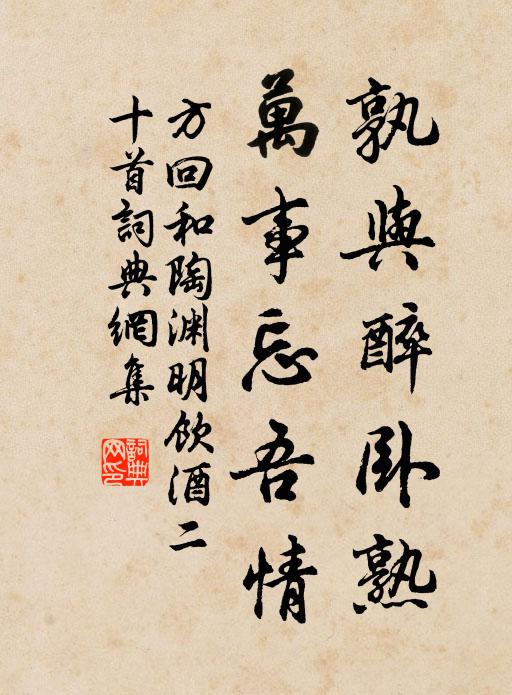 孰與醉卧熟
萬事忘吾情
方回和陶淵明飲酒二
十首詞典網集
詞典
网印